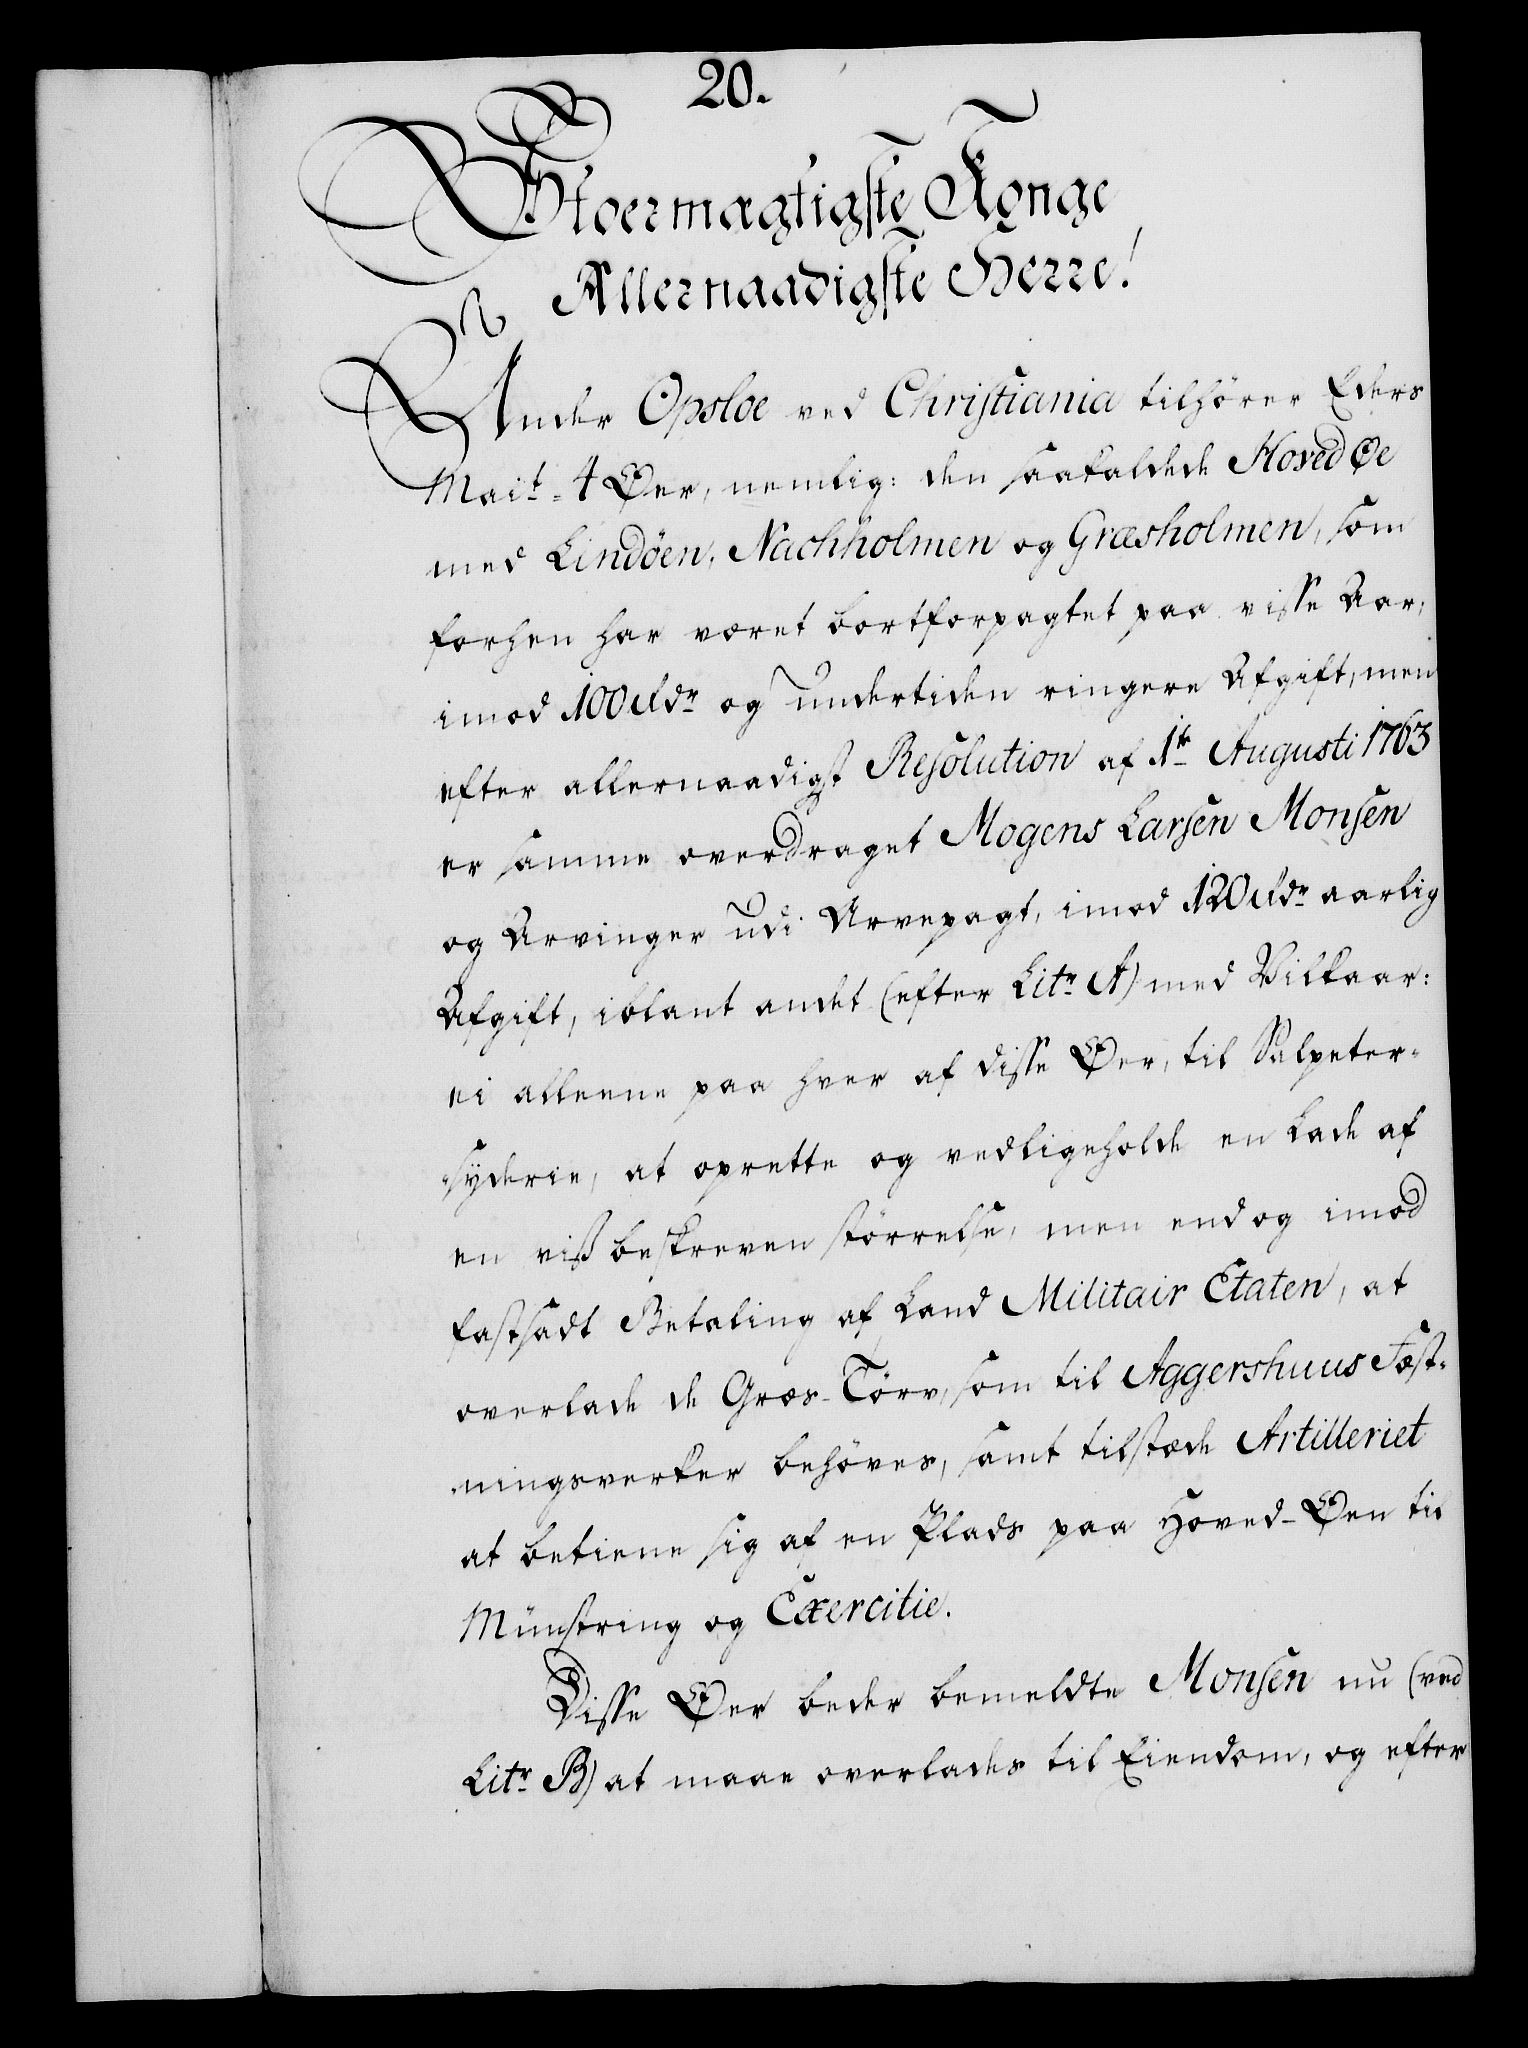 20.
Stoermægtigste Konge
Allernaadigste Herre!
Under Opsloe ved Christiania tilhörer Eders
Mait. 4 Øer, nemlig: den saakaldede Hoved Øe
med Lindöen, Nachholmen og Græsholmen, som
forhen har været bortforpagtet paa visse Aar,
imod 100 Rdr og undertiden ringere Afgift, men
efter allernaadigst Resolution af 1te Augusti 1763
er samme overdraget Mogens Larsen Monsen
og Arvinger udi Arvepagt, imod 120 Rdr aarlig
Afgift, iblant andet (efter Litr A) med Vilkaar:
ei alleene paa hver af disse Øer, til Salpeter-
syderie, at oprette og vedligeholde en Lade af
en viss beskreven störrelse, men endog imod
fastsadt Betaling af Land Militair Etaten, at
overlade de Græs-Törv, som til Aggershuus Fæst-
ningsverker behöves, samt tilstæde Artilleriet
at betiene sig af en Plads paa Hoved-Øen til
Münstring og Exercitie.
Disse Øer beder bemeldte Monsen nu (ved
Litr B) at maae overlades til Eiendom, og efter